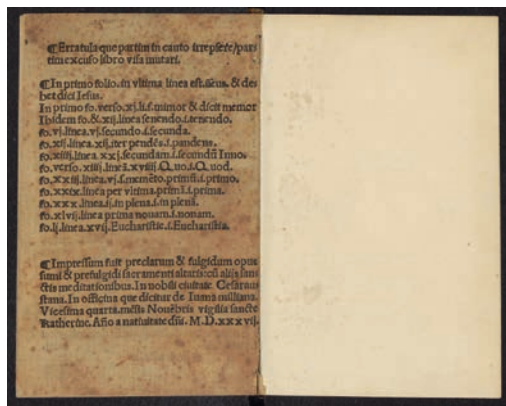 ¶Erratula que partim in cauto irrepsere/par
tim excuso libro visa mutari.
¶In primo folio. in vltima linea est. sēus. & de
bet dici Iesus.
In primo fo. verso. xj. li. s. mimor & dicit memor
Ibidem fo. & .xij. linea senendo. i. tenendo.
fo. vj. linea. vj. secundo. i. secunda.
fo. xij. linea. xij. iter pendēs. i. pandens.
fo. xiiij. linea. xxj. secundam. i. secundū Inno.
fo. verso. xiiij. lineā. xviiij. Q uo. i. Q uod.
fo. xxiij. linea. vj. s. memēto. primū. i. primo.
fo. xxix. linea per vltima. primā. i. prima.
fo. xxx. linea. ij. in plena. i. in plenā.
fo. xlvij. linea prima nouam. i. nonam.
fo. lj. linea. xvij. Eucharistie. i. Eucharistia.
¶Impressum fuit preclarum & fulgidum opus
sumi & prefulgidi sacramenti altaris: cū alijs san
ctis meditationibus. In nobili ciuitate Cesarau
stana. In officina que dicitur de Iuana milliana.
Vicesima quarta. mēsis Nouēbris vigilia sancte
Katherine. Año a natiuitate dñi. M.D.xxxvij.